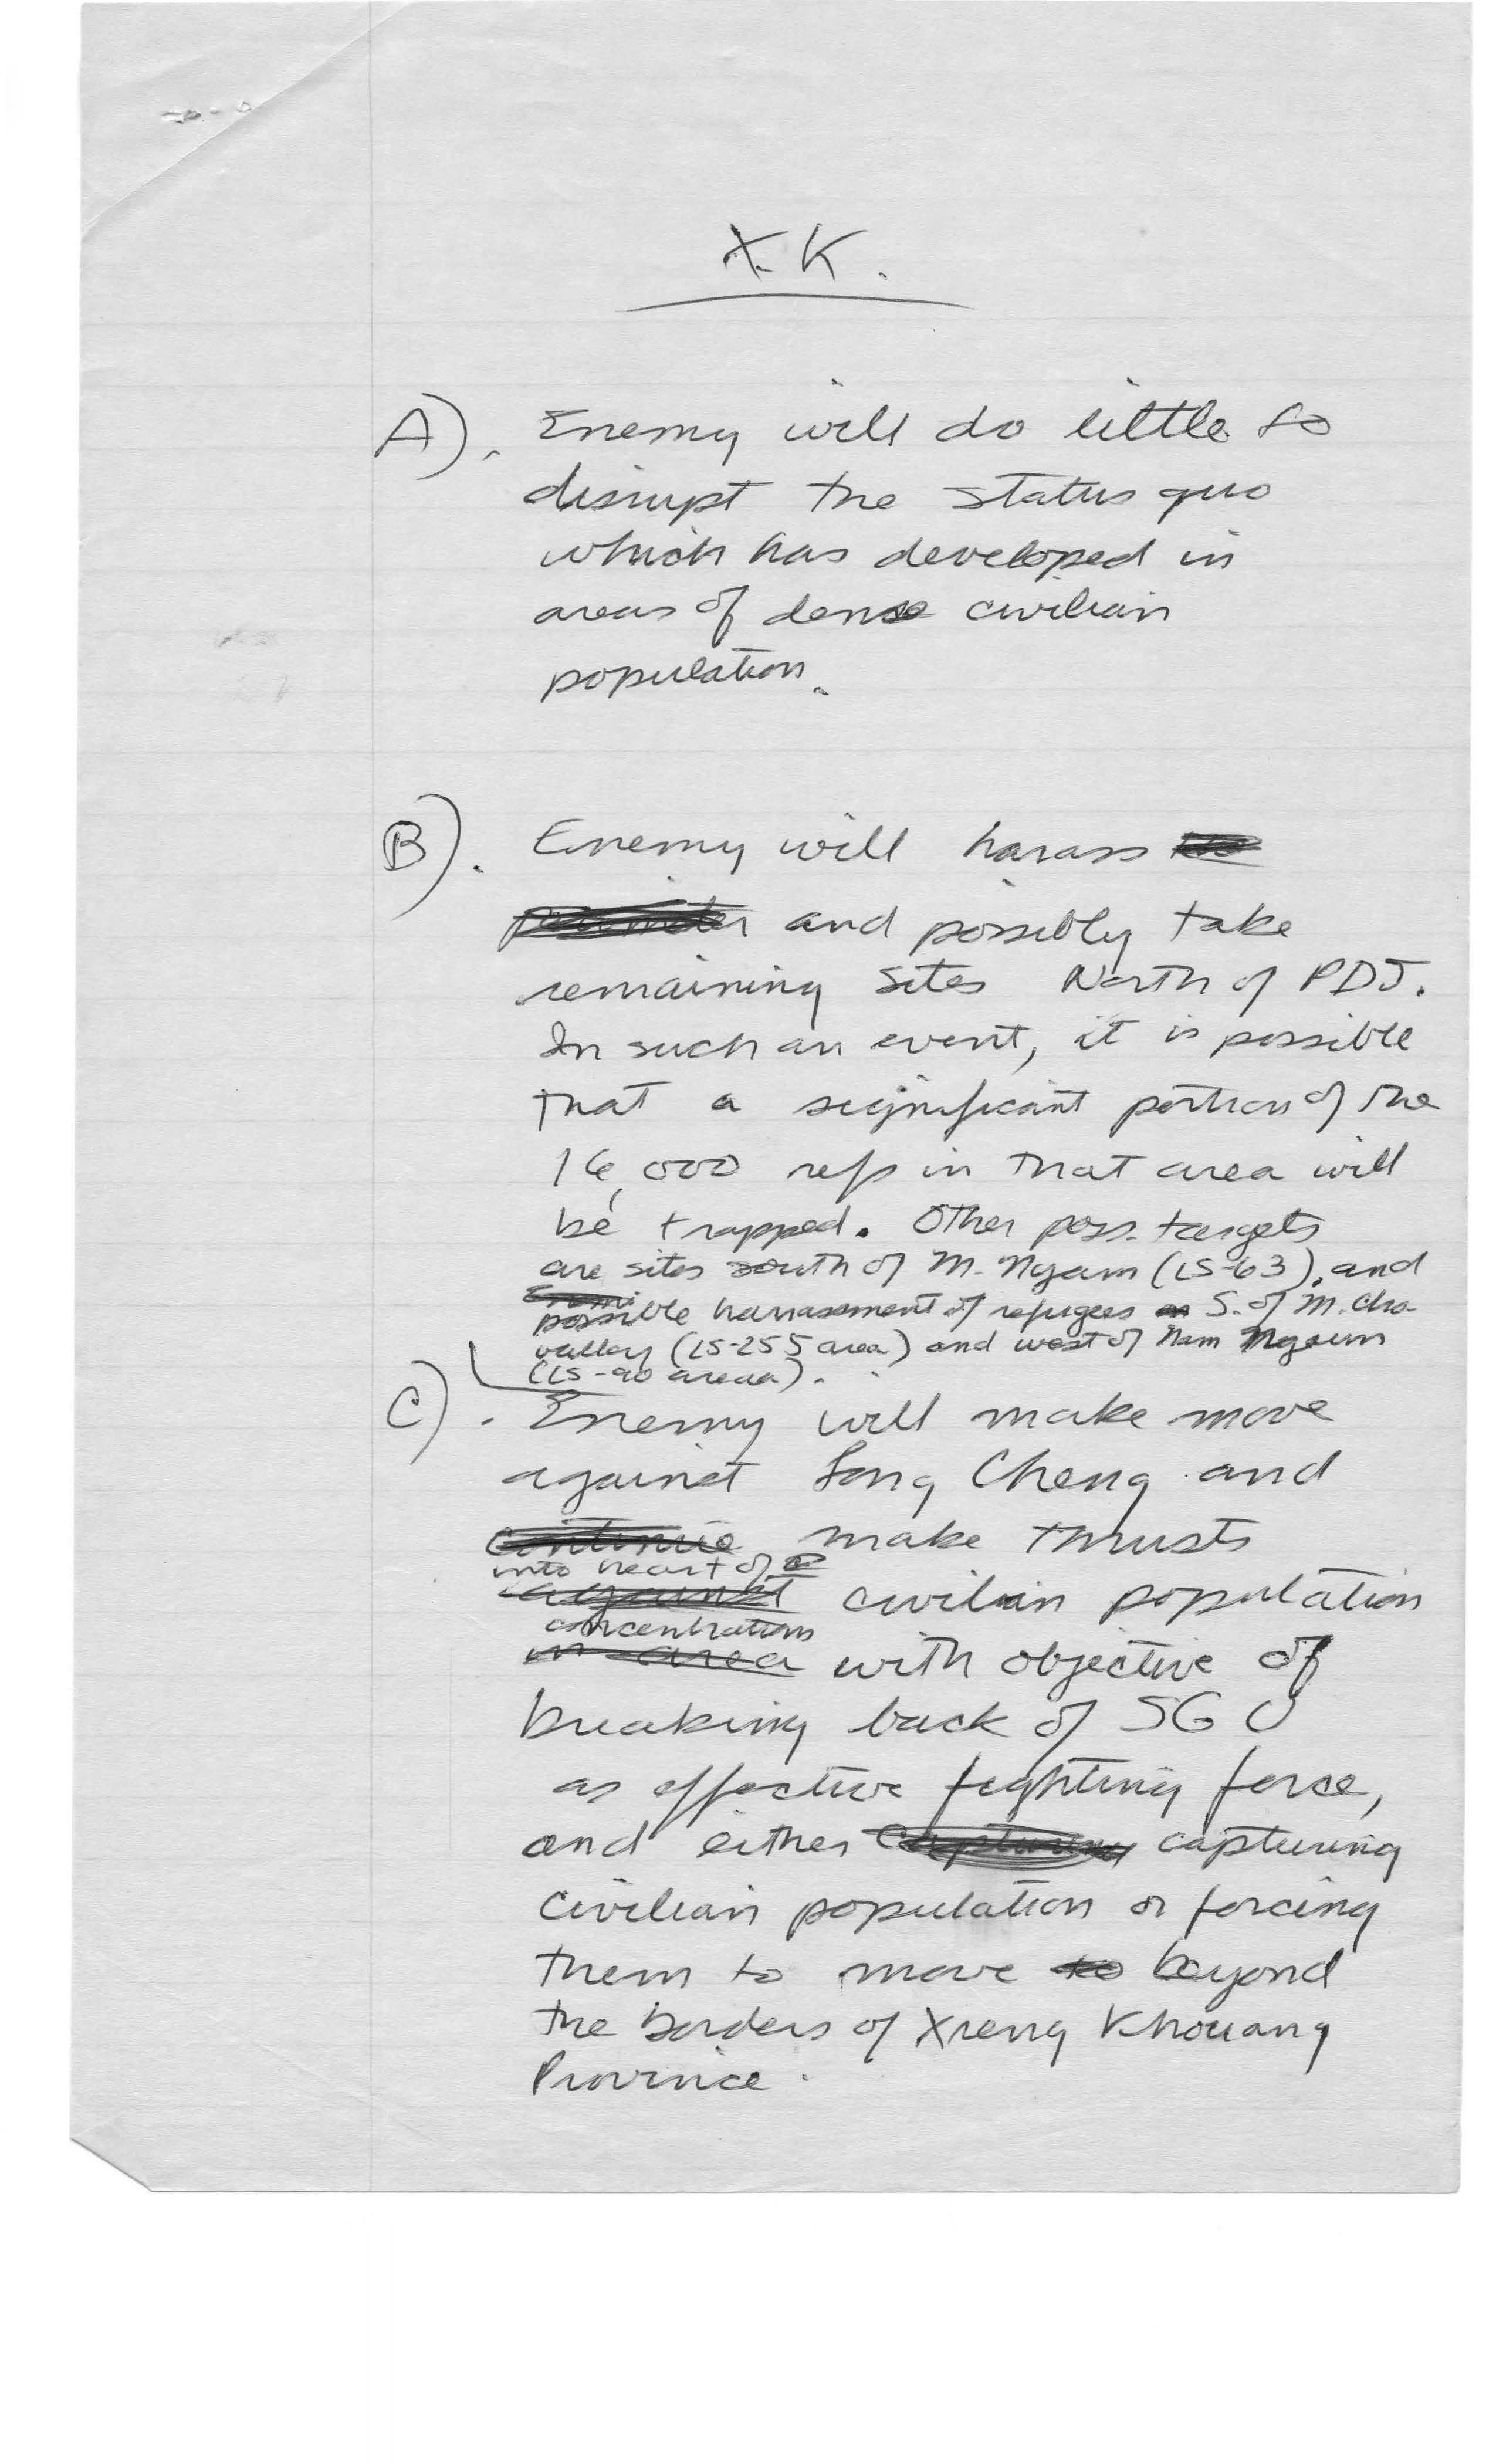 X.K.
A). Enemy will do little to
disrupt the status quo
which has developed in
areas of dense civilian
population.
B). Enemy will harass
and possibly take
remaining sites North of PDJ.
In such an event, it is possible
that a significant portion of the
16,000 refs in that area will
be trapped. Other poss. targets
are sites south of M. Ngam (LS-63), and
possible harrassment of refugees S. of M. Cha
valley (LS-255 area) and west of Nam Ngoum
(LS-90 areaa).
C). Enemy will make move
against Long Cheng and
continue make thrusts
into heart of
against civilian population
concentrations
in area with objective of
breaking back of SGU
as effective fighting force,
and either capturing capturing
civilian population or forcing
them to move to beyond
the borders of Xieng Khouang
Province.